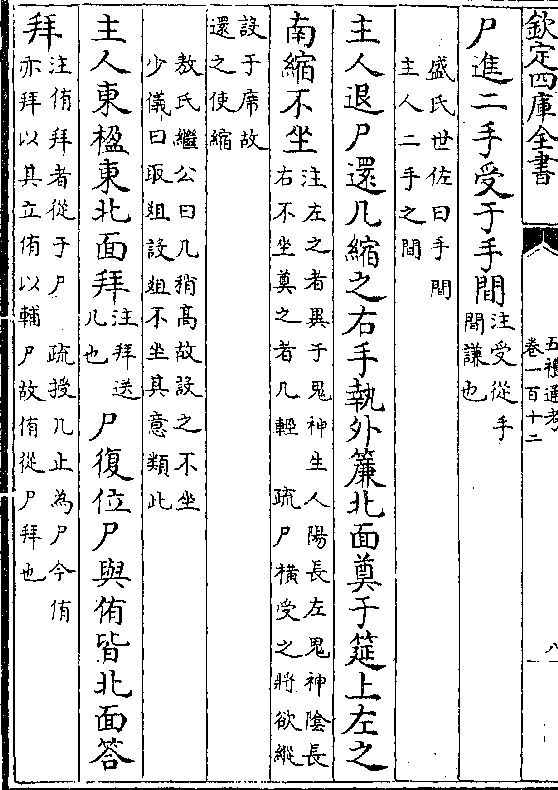 欽定四庫全書
五禮通考
卷一百十二
八
尸進二手受于手間注受從手
間謙也
盛氏世佐曰手間
主人二手之間
主人退尸還几縮之右手執外簾北面奠于筵上左之
南縮不坐注左之者異于鬼神生人陽長左鬼神陰長
右不坐奠之者几輕 疏尸橫受之將欲縱
設于席故
還之使縮
敖氏繼公曰几稍高故設之不坐
少儀曰取俎設俎不坐其意類此
主人東楹東北面拜注拜送
几也 尸復位尸與侑皆北面答
拜注侑拜者從于尸 疏授几止為尸今侑
亦拜以其立侑以輔尸故侑從尸拜也